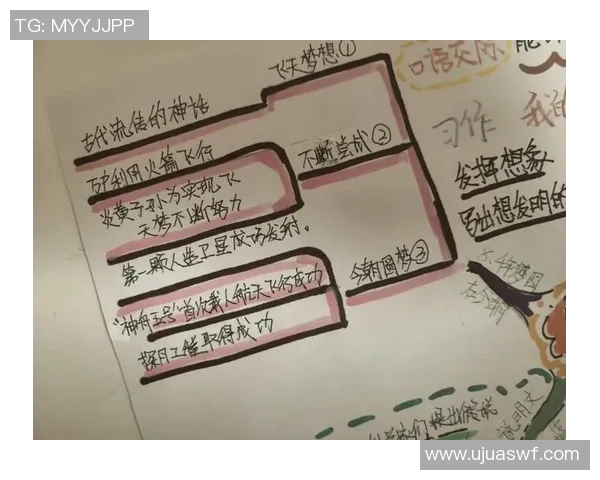 TG: MYYJJPP
飞天梦想①
古代流传的神话
万户利用火箭飞行
不断尝试②
炎黄子孙为实现飞
天梦不断努力
第一颗人造卫星成功发射。
今朝圆梦③
"神舟五号"首次载人航天飞行成功
探月工程取得成功
口语交际
习作
我的
发挥想象
写出想发明的
千年梦圆
在今朝
提出假说
说明文
www.ujuaswf.com